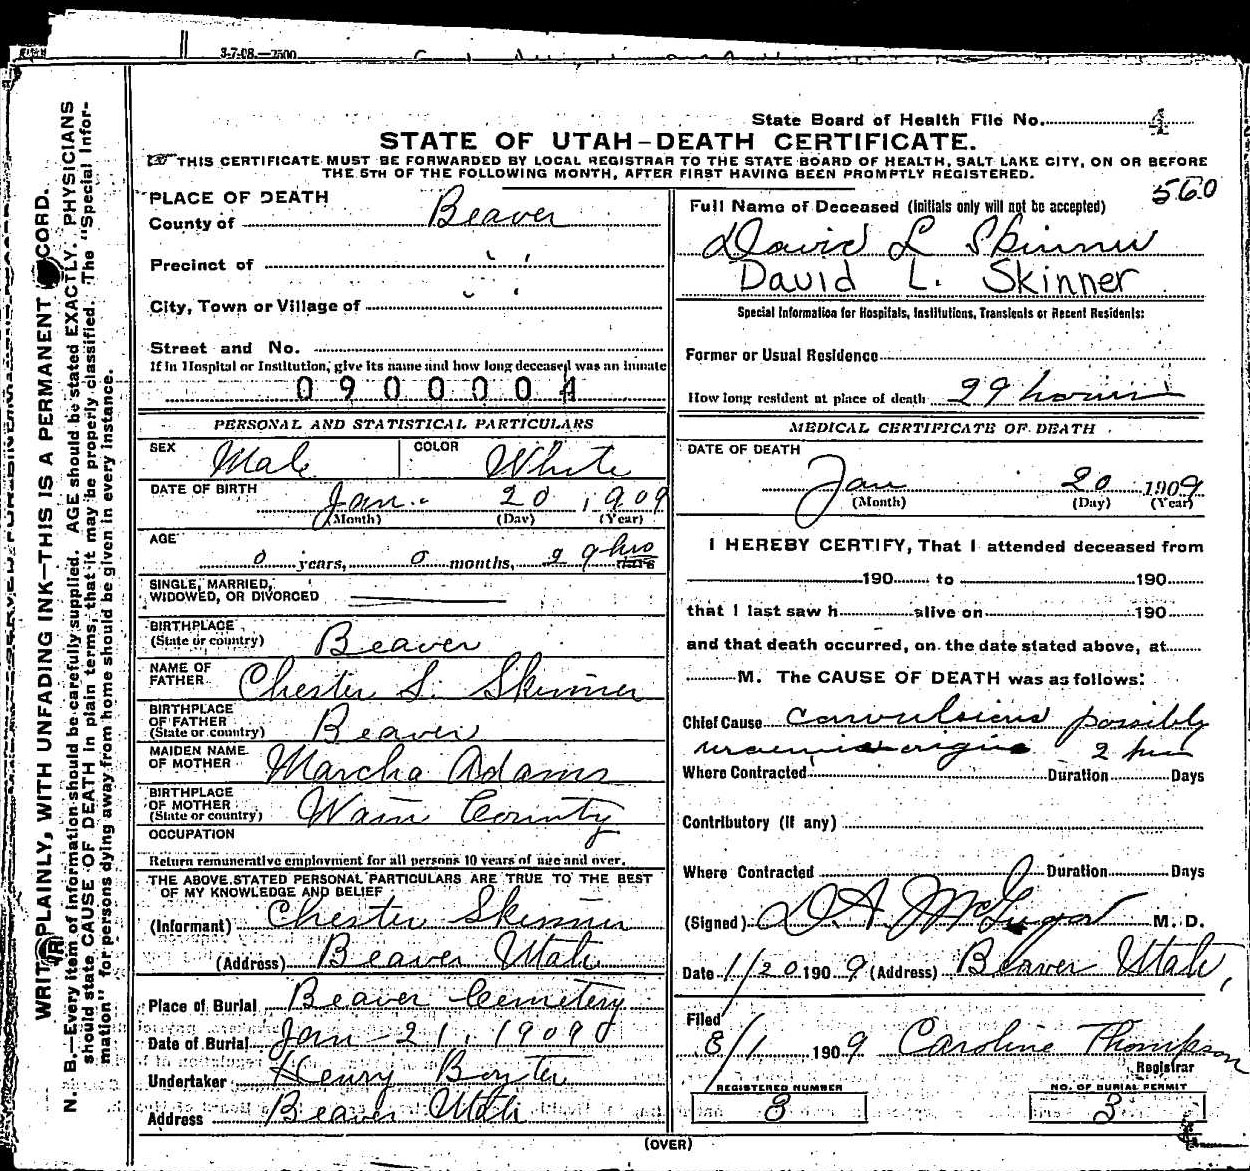 3-7-08.—2500
State Board of Health File No. 4
STATE OF UTAH—DEATH CERTIFICATE.
THIS CERTIFICATE MUST BE FORWARDED BY LOCAL REGISTRAR TO THE STATE BOARD OF HEALTH, SALT LAKE CITY, ON OR BEFORE
THE 5TH OF THE FOLLOWING MONTH, AFTER FIRST HAVING BEEN PROMPTLY REGISTERED.
WRITE PLAINLY, WITH UNFADING INK—THIS IS A PERMANENT RECORD.
N. B.—Every item of Information should be carefully supplied. AGE should be stated EXACTLY. PHYSICIANS
should state CAUSE OF DEATH in plain terms, that it may be properly classified. The "Special Infor-
mation" for persons dying away from home should be given in every instance.
PLACE OF DEATH
County of Beaver
Precinct of
City, Town or Village of
Street and No.
If in Hospital or Institution, give its name and how long deceased was an inmate
0900004
PERSONAL AND STATISTICAL PARTICULARS
SEX Male COLOR White
DATE OF BIRTH Jan. 20, 1909
(Month) (Day) (Year)
AGE
0 years, 0 months, 29 hrs days
SINGLE, MARRIED,
WIDOWED, OR DIVORCED
BIRTHPLACE
(State or country) Beaver
NAME OF
FATHER Chester S. Skinner
BIRTHPLACE
OF FATHER
(State or country) Beaver
MAIDEN NAME
OF MOTHER Marcha Adams
BIRTHPLACE
OF MOTHER
(State or country) Wain County
OCCUPATION
Return remunerative employment for all persons 10 years of age and over.
THE ABOVE STATED PERSONAL PARTICULARS ARE TRUE TO THE BEST
OF MY KNOWLEDGE AND BELIEF
(Informant) Chester Skinner
(Address) Beaver Utah
Place of Burial Beaver Cemetery
Date of Burial Jan 21, 1909
Undertaker Henry Boyter
Address Beaver Utah
560
Full Name of Deceased (Initials only will not be accepted)
David L Skinner
David L. Skinner
Special Information for Hospitals, Institutions, Transients or Recent Residents:
Former or Usual Residence
How long resident at place of death 29 hours
MEDICAL CERTIFICATE OF DEATH
DATE OF DEATH
Jan 20 1909
(Month) (Day) (Year)
I HEREBY CERTIFY, That I attended deceased from
190 to 190
that I last saw h alive on 190
and that death occurred, on the date stated above, at
M. The CAUSE OF DEATH was as follows:
Chief Cause convulsions possibly
uraemic origin 2 hrs
Where Contracted Duration Days
Contributory (if any)
Where Contracted Duration Days
(Signed) D. A. McGregor M. D.
Date 1/20 1909 (Address) Beaver Utah,
Filed
8/1 1909 Caroline Thompson
Registrar
REGISTERED NUMBER
8
NO. OF BURIAL PERMIT
3
(OVER)